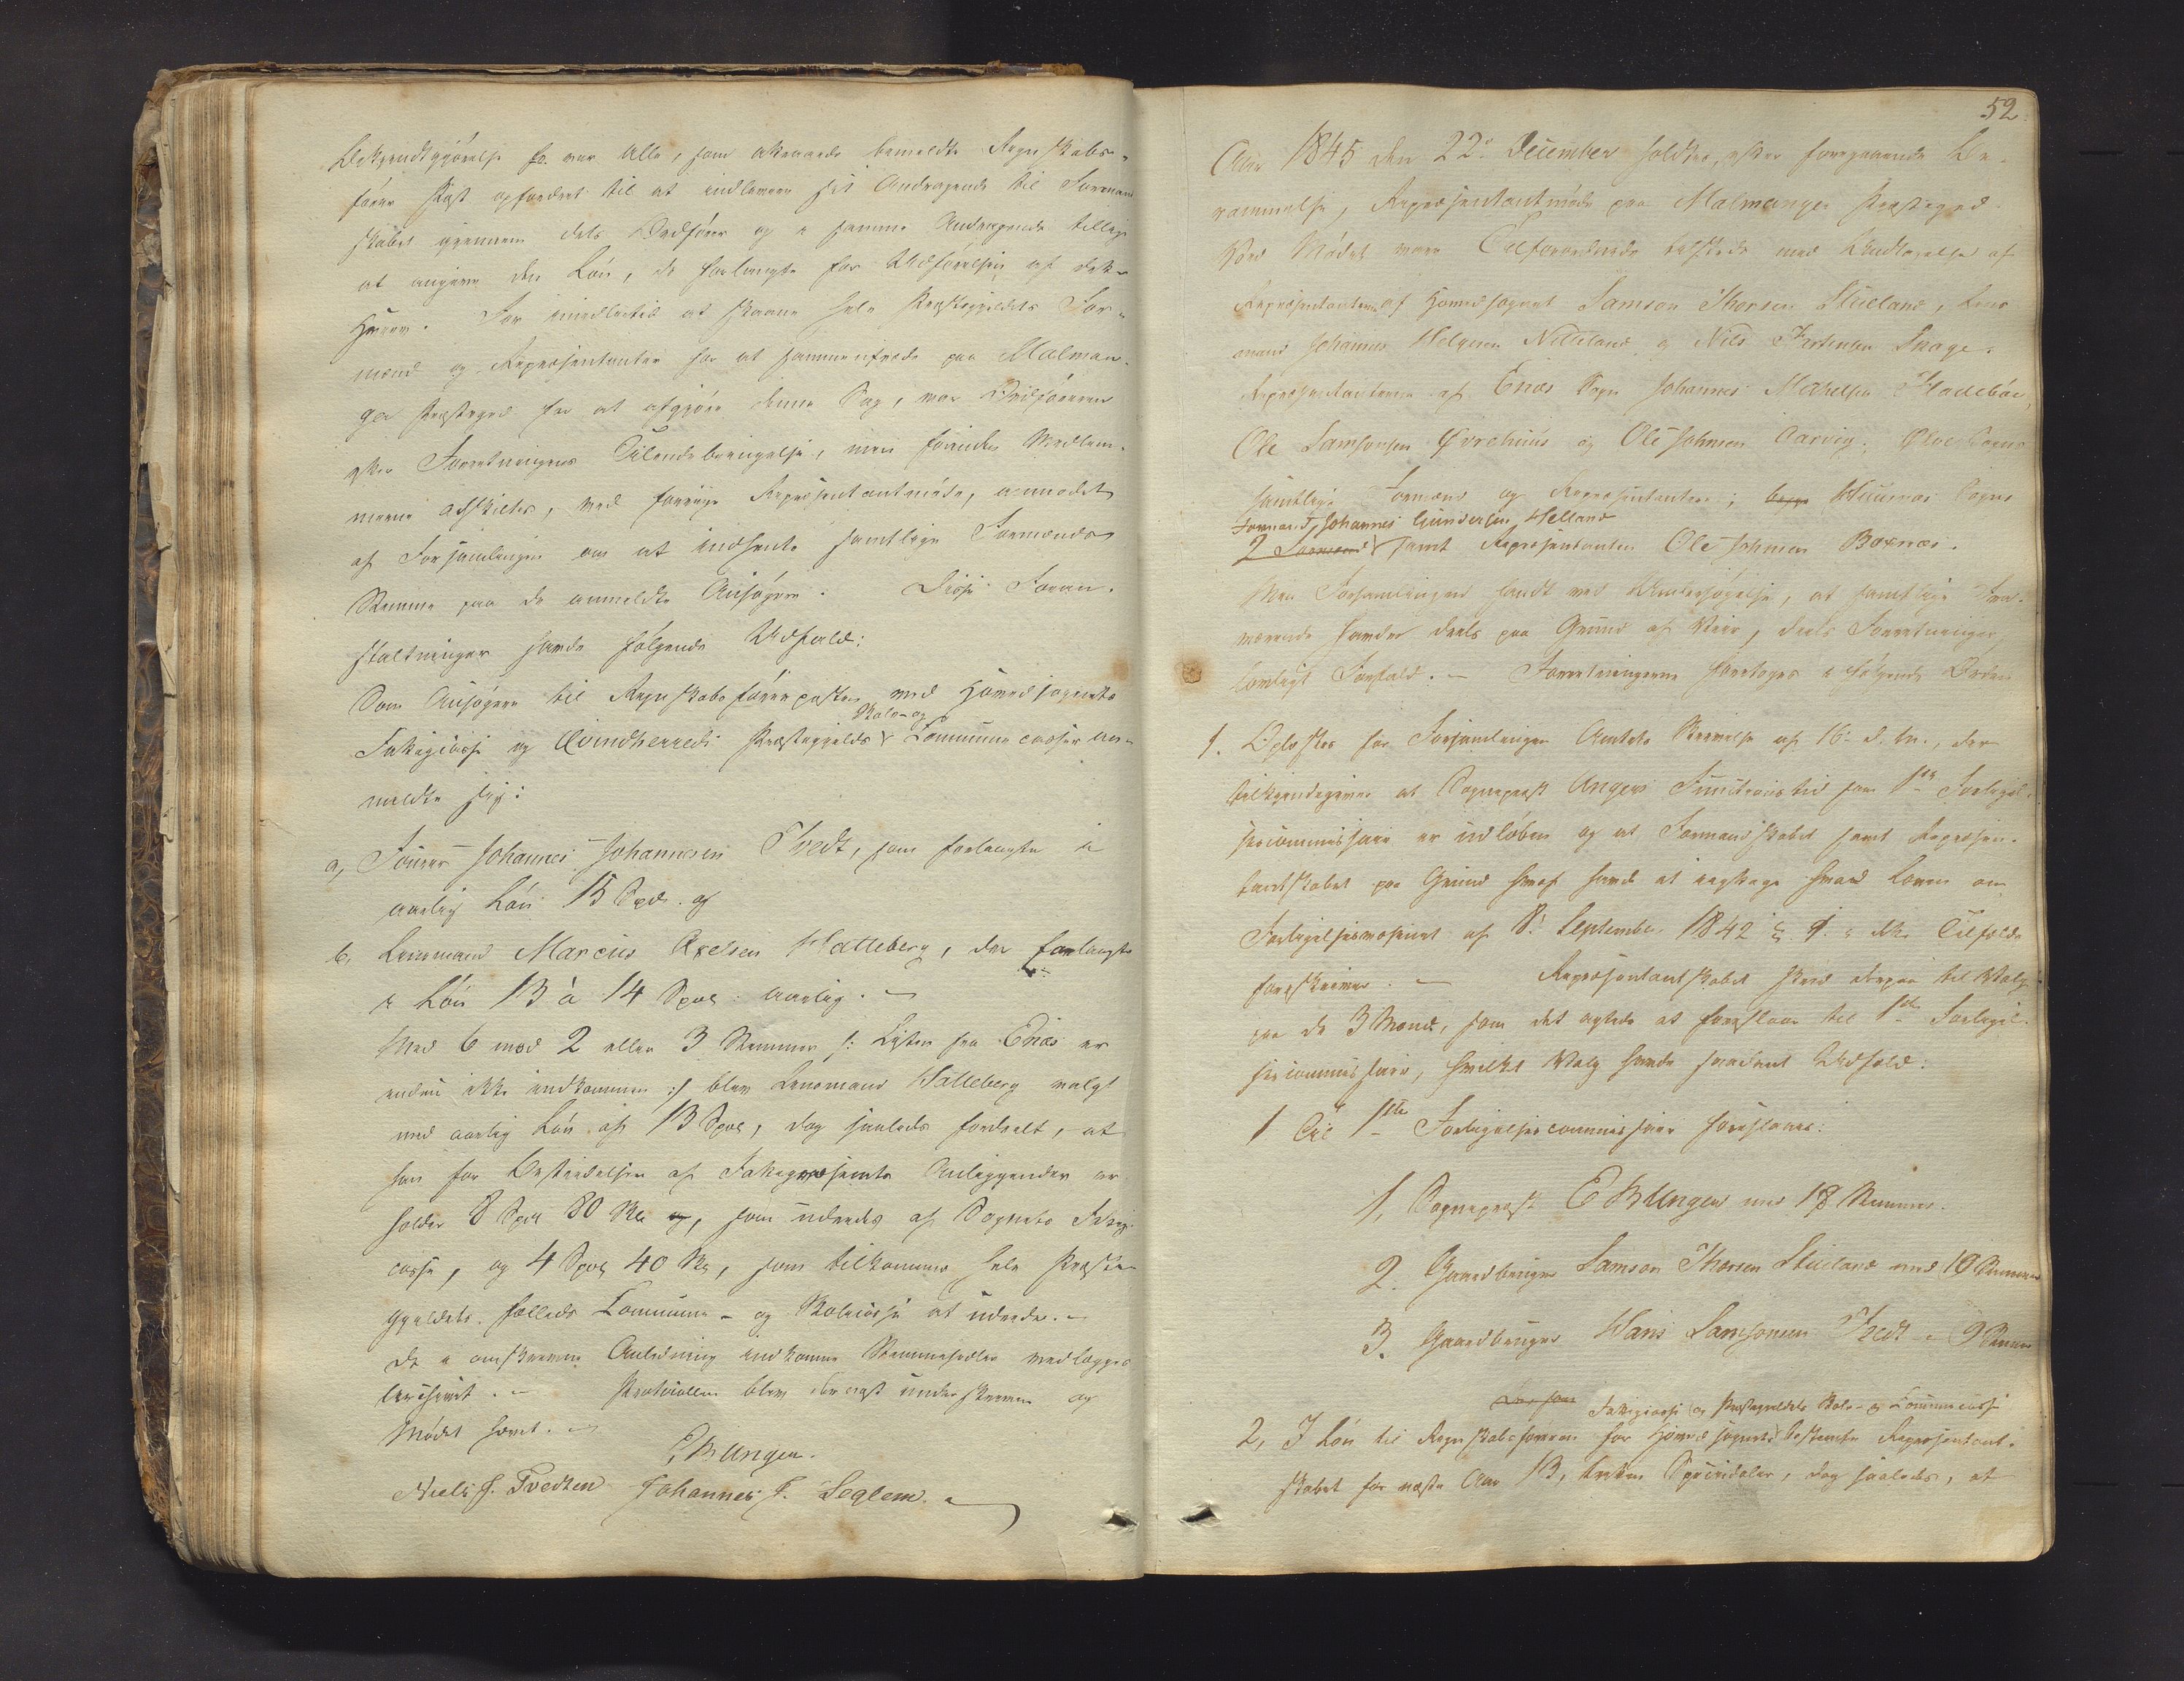 Bekjendtgjørelse fo. var Alle, som attraaede bemeldte Regnskabs-
fører Post opfordret til at indlevere sit Andragende til Formand
skabet gjennem dets Ordfører og i samme Andragende tillige
at angive den Løn, de forlangte for Udførelsen af dette
Hverv. For imidlertid at skaane hele Præstegjeldets For-
mænd og Repræsentanter for at sammentræde paa Malman-
ger Præstegaard for at afgjøre denne Sag, var Ordføreren
efter Forretningens Tilendebringelse, men førinden Medlem-
merne adskiltes, ved forrige Repræsentantmøde, anmodet
af Forsamlingen om at indhente samtlige Formænds
Stemme paa de anmeldte Ansøgere. Disse Foran-
staltninger havde følgende Udfald:
Som Ansøgere til Regnskabsførerposten ved Hovedsognets
Skole- og
Fattigcasse og Qvindherreds Præstegjelds Communecasser an-
meldte sig:
a, Fourer Johannes Johannesen Tvedt, som forlangte i
aarlig Løn 15 Spd. og
b, Lensmand Marcus Axelsen Hatteberg, der forlangte
i Løn 13 à 14 Spd. aarlig. –
Med 6 mod 2 eller 3 Stemmer /: Listen fra Enæs er
endnu ikke indkommen :/ blev Lensmand Hatteberg valgt
med aarlig Løn af 13 Spd, dog saaledes fordeelt, at
han for Bestridelsen af Fattigvæsenets Anliggender er-
holder 8 Spd 80 Sk, som udredes af Sognets Fattig-
casse, og 4 Spd 40 Sk, som tilkommer hele Præste-
gjeldets fælleds Commune- og Skolecasse at udrede. –
De i omskrevne Anledning indkomne Stemmesedler vedlægges
Protocollen blev dernæst underskreven og
Mødet hævet. –
E Bull Unger.
Niels J. Tvedten Johannes J. Seglem.
52.
Aar 1845 den 22de December holdtes, efter foregaaende Be-
rammelse, Repræsentantmøde paa Malmanger Præstegaard.
Ved Mødet vare Tilforordnede tilstede med Undtagelse af
Repræsentanterne af Hovedsognet Samson Thorsen Stueland, Lens
mand Johannes Helgesen Nilleland og Nils Iversen Skoge.
Repræsentanterne af Enæs Sogn Johannes Mikkelsen Fladebøe,
Ole Samsonsen Øvrehuus og Ole Johnsen Aarvig; Ølve Sogns
samtlige Formænd og Repræsentanter; begge Huusnæs Sogns
Formand, Johannes Gundersen Helland
2 Formænd samt Repræsentanten Ole Johnsen Boxnæs.
Men Forsamlingen fandt ved Undersøgelse, at samtlige Fra-
værende havde deels paa Grund af Veir, deels Forretninger,
lovligt Forfald. – Forretningerne foretoges i følgende Orden
1. Oplæstes for Forsamlingen Amtets Skrivelse af 16de d. M., der
tilkjendegiver at Sognepræst Ungers Functionstid som 1ste Forligel-
sescommissair er udløben og at Formandskabet samt Repræsen-
tantskabet paa Grund heraf havde at iagttage hvad Loven om
Forligelsesvæsenet af 8de September 1842 § 4 i dette Tilfælde
foreskriver. – Repræsentantskabet skred derpaa til Valg
paa de 3 Mænd, som det agtede at foreslaae til 1ste Forligel-
sescommissair, hvilket Valg havde saadant Udfald:
1 Til 1ste Forligelsescommissair foreslaaes:
1, Sognepræst E Bull Unger med 18 Stemmer.
2. Gaardbruger Samson Thorsen Stueland med 10 Stemmer
3. Gaardbruger Hans Samsonsen Tvedt – 9 Stemmer
Fattigcasse og Præstegjeldets Skole- og Communecasse
2, I Løn til Regnskabsføreren for Hovedsognets bestemte Repræsentant-
skabet for næste Aar 13, tretten Speciedaler, dog saaledes, at